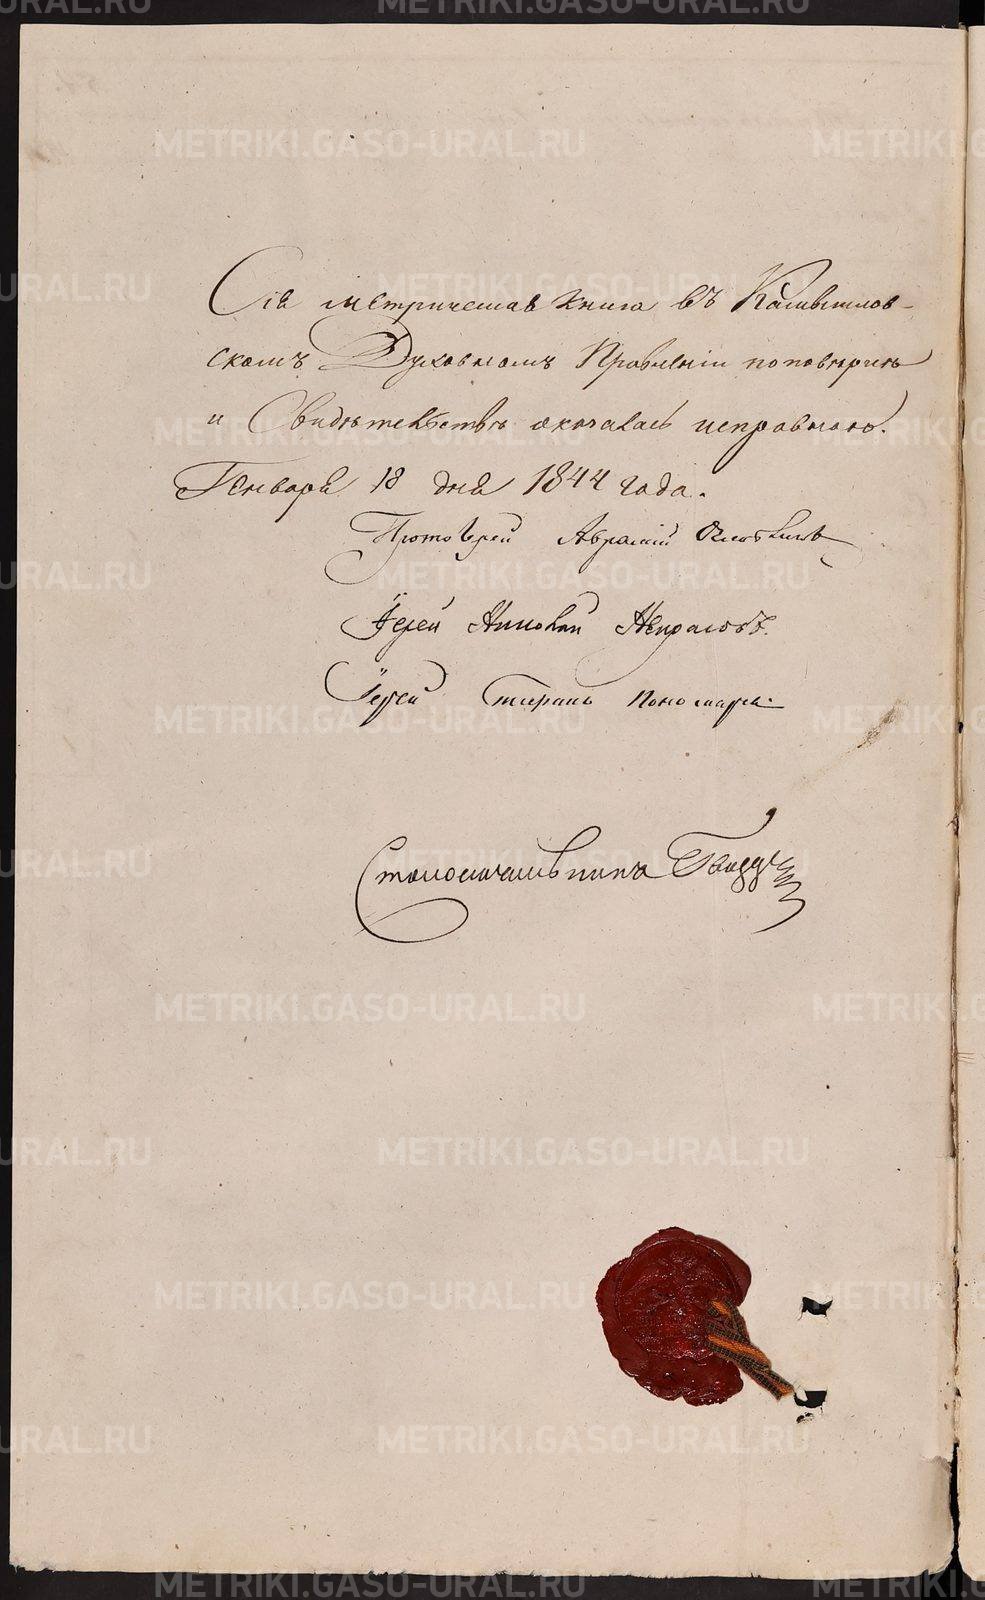 Сія метрическая книга въ Камышлов-
скомъ Духовномъ Правленіи по повѣркѣ
и Свидѣтельствѣ оказалась исправною.
Генваря 18 дня 1844 года.
Протоіерей Аврамій
Іерей Николай Некрасовъ.
Іерей Стефанъ Пономаревъ
Столоначальникъ
METRIKI.GASO-URAL.RU